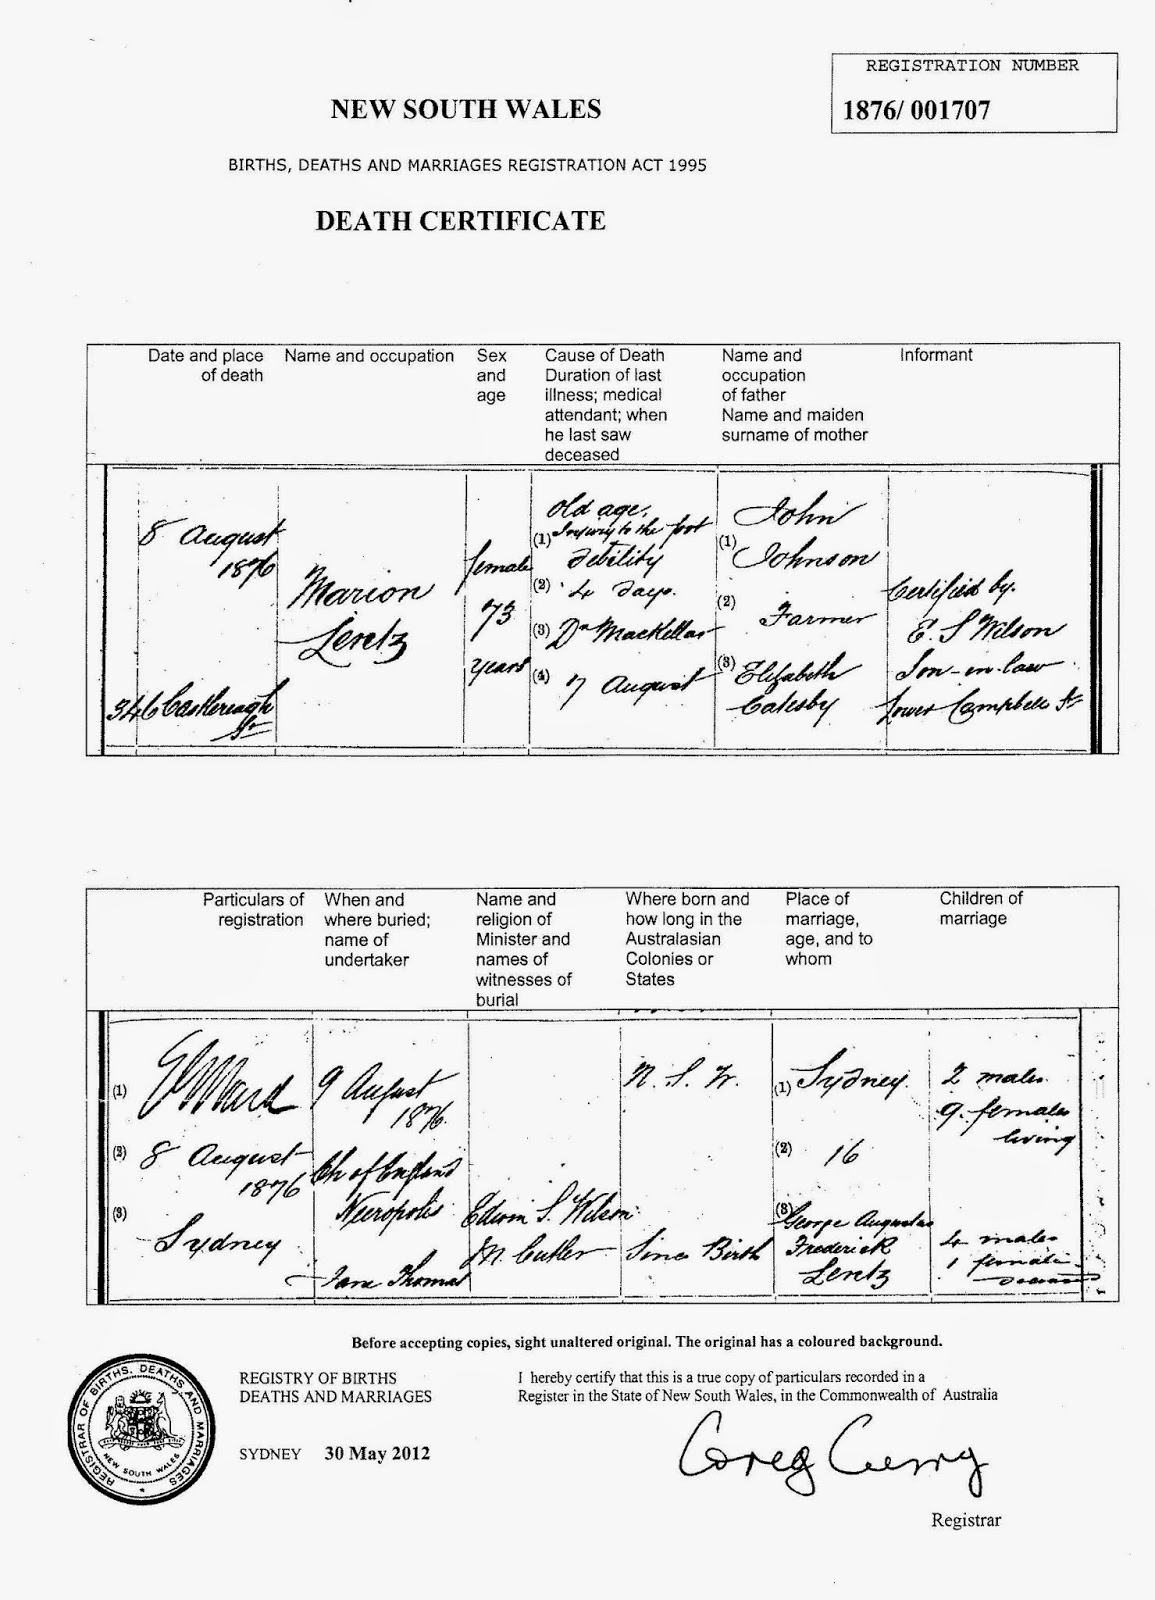 REGISTRATION NUMBER
1876/ 001707
NEW SOUTH WALES
BIRTHS, DEATHS AND MARRIAGES REGISTRATION ACT 1995
DEATH CERTIFICATE
Date and place
of death
Name and occupation
Sex
and
age
Cause of Death
Duration of last
illness; medical
attendant; when
he last saw
deceased
Name and
occupation
of father
Name and maiden
surname of mother
Informant
8 August
1876
346 Castlereagh
St
Marion
Lentz
female
73
years
old age,
(1) Injury to the foot
debility
(2) 4 days.
(3) Dr MacKellar
(4) 7 August
John
(1) Johnson
(2) Farmer
(3) Elizabeth
Catesby
Certified by.
E. S Wilson
Son-in-law
Lower Campbell St
Particulars of
registration
When and
where buried;
name of
undertaker
Name and
religion of
Minister and
names of
witnesses of
burial
Where born and
how long in the
Australasian
Colonies or
States
Place of
marriage,
age, and to
whom
Children of
marriage
(1) Ward
(2) 8 August
1876
(3) Sydney
9 August
1876
Ch of England
Necropolis
Thomas
Edwin S. Wilson
M. Cutler
N. S. W.
Since Birth
(1) Sydney
(2) 16
(3) George Augustus
Frederick
Lentz
2 males
9 females
living
4 males
1 female
Before accepting copies, sight unaltered original. The original has a coloured background.
REGISTRAR OF BIRTHS, DEATHS AND MARRIAGES
NEW SOUTH WALES
REGISTRY OF BIRTHS
DEATHS AND MARRIAGES
SYDNEY 30 May 2012
I hereby certify that this is a true copy of particulars recorded in a
Register in the State of New South Wales, in the Commonwealth of Australia
Greg Curry
Registrar